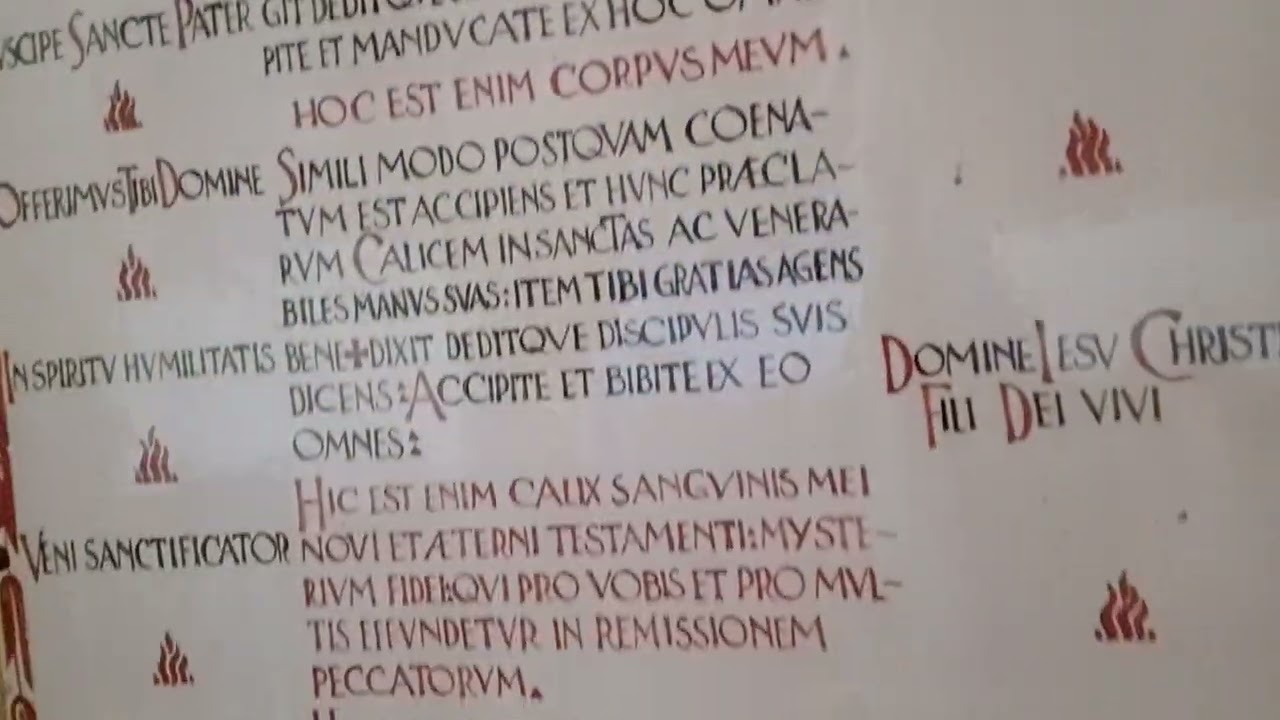 SANCTE PATER
OFFERIMVS TIBI DOMINE
IN SPIRITV HVMILITATIS
VENI SANCTIFICATOR
PITE ET MANDVCATE EX HOC
HOC EST ENIM CORPVS MEVM.
SIMILI MODO POSTQVAM COENA-
TVM EST ACCIPIENS ET HVNC PRÆCLA-
RVM CALICEM IN SANCTAS AC VENERA-
BILES MANVS SVAS: ITEM TIBI GRATIAS AGENS
BENE+DIXIT DEDITQVE DISCIPVLIS SVIS
DICENS: ACCIPITE ET BIBITE EX EO
OMNES:
HIC EST ENIM CALIX SANGVINIS MEI
NOVI ET ÆTERNI TESTAMENTI: MYSTE-
RIVM FIDEI: QVI PRO VOBIS ET PRO MVL-
TIS EFFVNDETVR IN REMISSIONEM
PECCATORVM.
DOMINE IESV CHRISTI
FILI DEI VIVI